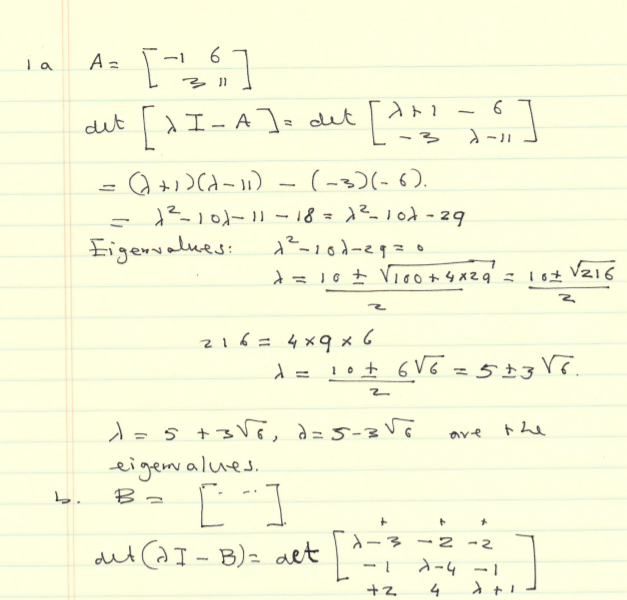 1a A = [ -1 6
3 11 ]
det [ λI - A ] = det [ λ+1 - 6
-3 λ-11 ]
= (λ+1)(λ-11) - (-3)(-6).
= λ²-10λ-11-18 = λ²-10λ-29
Eigenvalues: λ²-10λ-29 = 0
λ = 10 ± √100+4×29 / 2 = 10 ± √216 / 2
216 = 4×9×6
λ = 10 ± 6√6 / 2 = 5±3√6.
λ = 5 + 3√6, λ = 5-3√6 are the
eigenvalues.
b. B = [ .. .. ]
+ + +
det(λI - B) = det [ λ-3 -2 -2
-1 λ-4 -1
+2 4 λ+1 ]